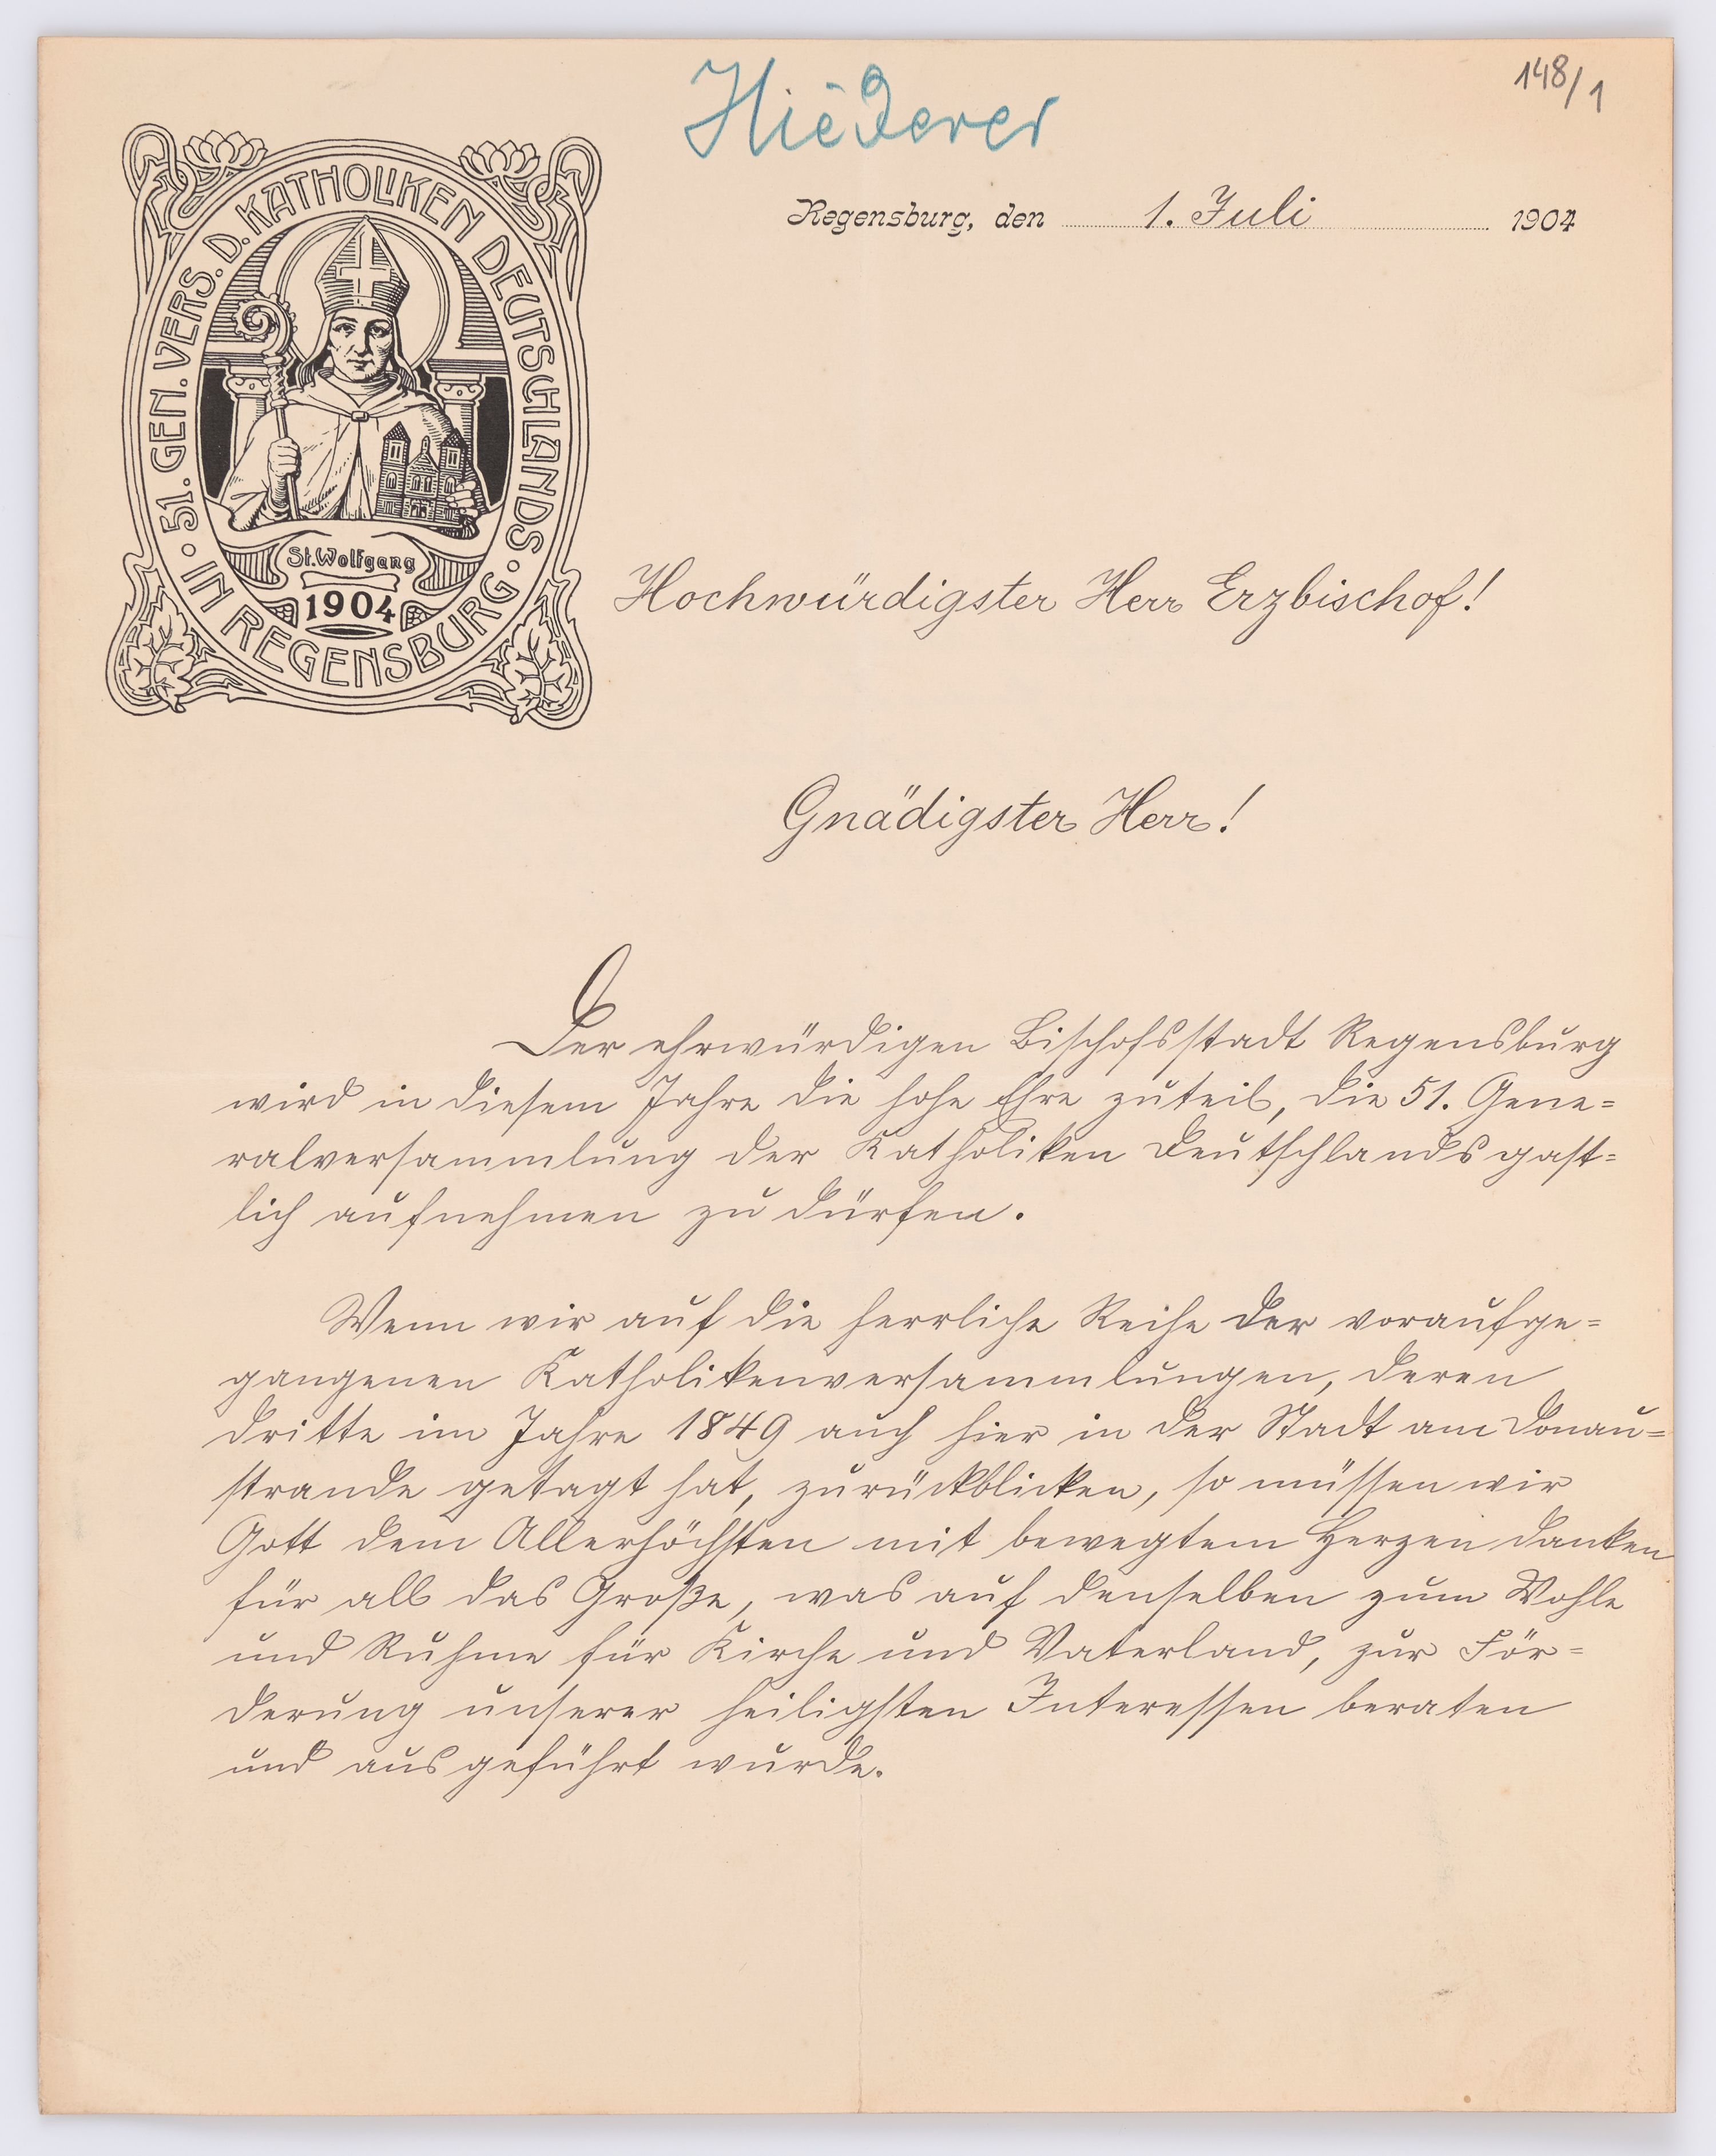 Hiederer
148/1
51. GEN. VERS. D. KATHOLIKEN DEUTSCHLANDS
IN REGENSBURG
St. Wolfgang
1904
Regensburg, den 1. Juli 1904
Hochwürdigster Herr Erzbischof!
Gnädigster Herr!
Der ehrwürdigen Bischofsstadt Regensburg
wird in diesem Jahre die hohe Ehre zuteil, die 51. Gene=
ralversammlung der Katholiken Deutschlands gast=
lich aufnehmen zu dürfen.
Wenn wir auf die herrliche Reihe der voraufge=
gangenen Katholikenversammlungen, deren
dritte im Jahre 1849 auch hier in der Stadt am Donau=
strande getagt hat, zurückblicken, so müssen wir
Gott dem Allerhöchsten mit bewegtem Herzen danken
für all das Große, was auf denselben zum Wohle
und Ruhme für Kirche und Vaterland, zur För=
derung unserer heiligsten Interessen beraten
und ausgeführt wurde.